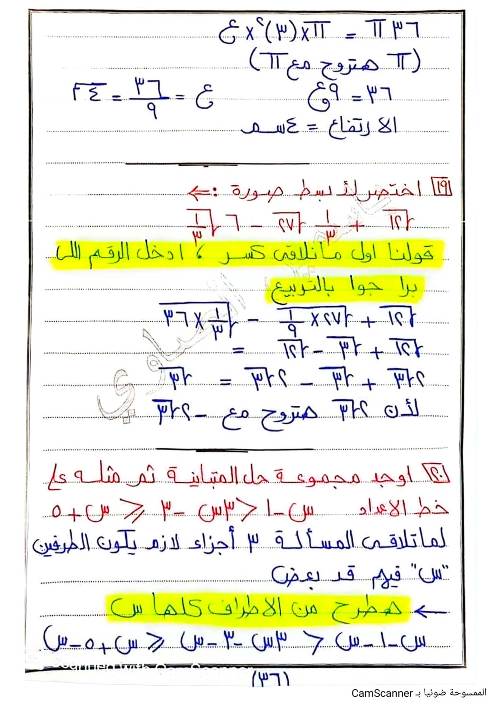 ٣٦π = π×(٣)²×ع
(π هتروح مع π)
٣٦ = ٩ع    ع = ٣٦/٩ = ٤سم
الارتفاع = ٤سم
[١٩] اختصر لأبسط صورة :←
√١٢ + ١/٣ √٢٧ - ٦ √(١/٣)
قولنا اول ماتلاقى كسر ، ادخل الرقم اللى
برا جوا بالتربيع
√١٢ + √(٢٧×١/٩) - √(١/٣×٣٦)
= √١٢ + √٣ - √١٢
٢√٣ + √٣ - ٢√٣ = √٣
لأن ٢√٣ هتروح مع -٢√٣
[٢٠] اوجد مجموعة حل المتباينة ثم مثله على
خط الاعداد    س-١ < ٣س-٣ ⩽ س+٥
لما تلاقى المسألة ٣ أجزاء لازم يكون الطرفين
"س" فيهم قد بعض
← هطرح من الاطراف كلها س
س-١-س < ٣س-٣-س ⩽ س+٥-س
(٣٦)
الممسوحة ضوئيا بـ CamScanner